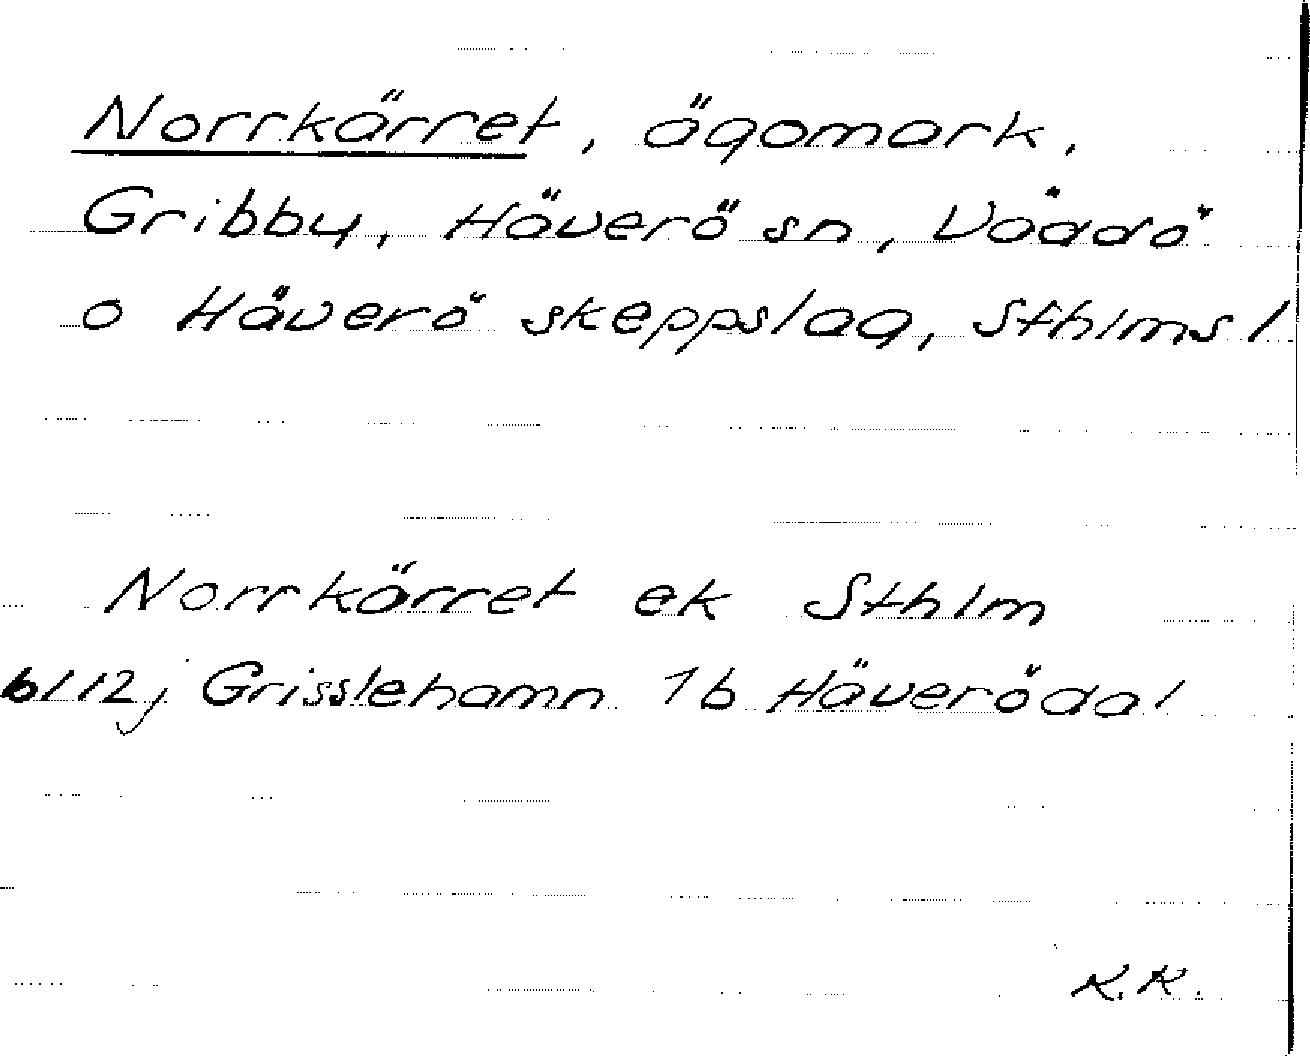 Norrkärret, ägomark,
Gribby, Häverö sn, Väddö
o Häverö skeppslag, Sthlms l
Norrkärret ek Sthlm
6112j Grisslehamn 1b Häverödal
K.K.